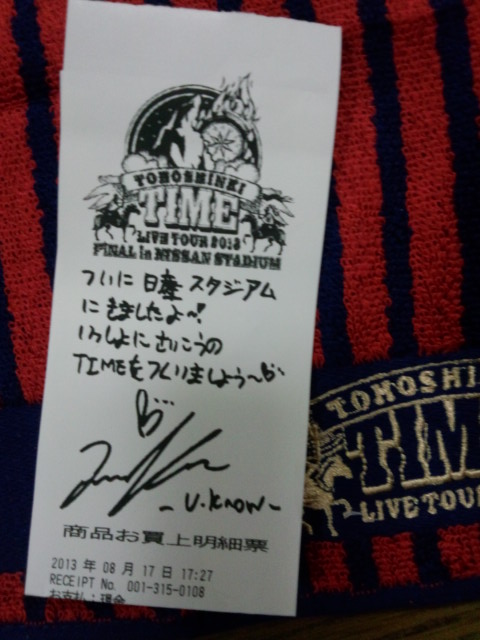 TOHOSHINKI
TIME
LIVE TOUR 2013
FINAL in NISSAN STADIUM
ついに 日産 スタジアム
にきましたよ〜!
いっしょにさいこうの
TIMEをつくりましょう〜
- U-KNOW -
商品お買上明細票
2013 年 08 月 17 日 17:27
RECEIPT No. 001-315-0108
お支払:現金
TOHOSHI
TIM
LIVE TOUR